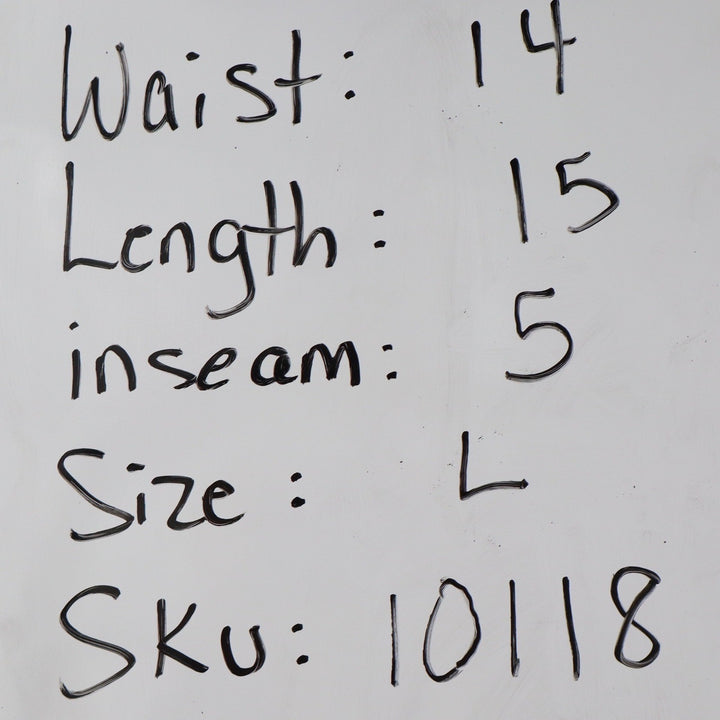 Waist: 14
Length: 15
inseam: 5
Size: L
SKU: 10118